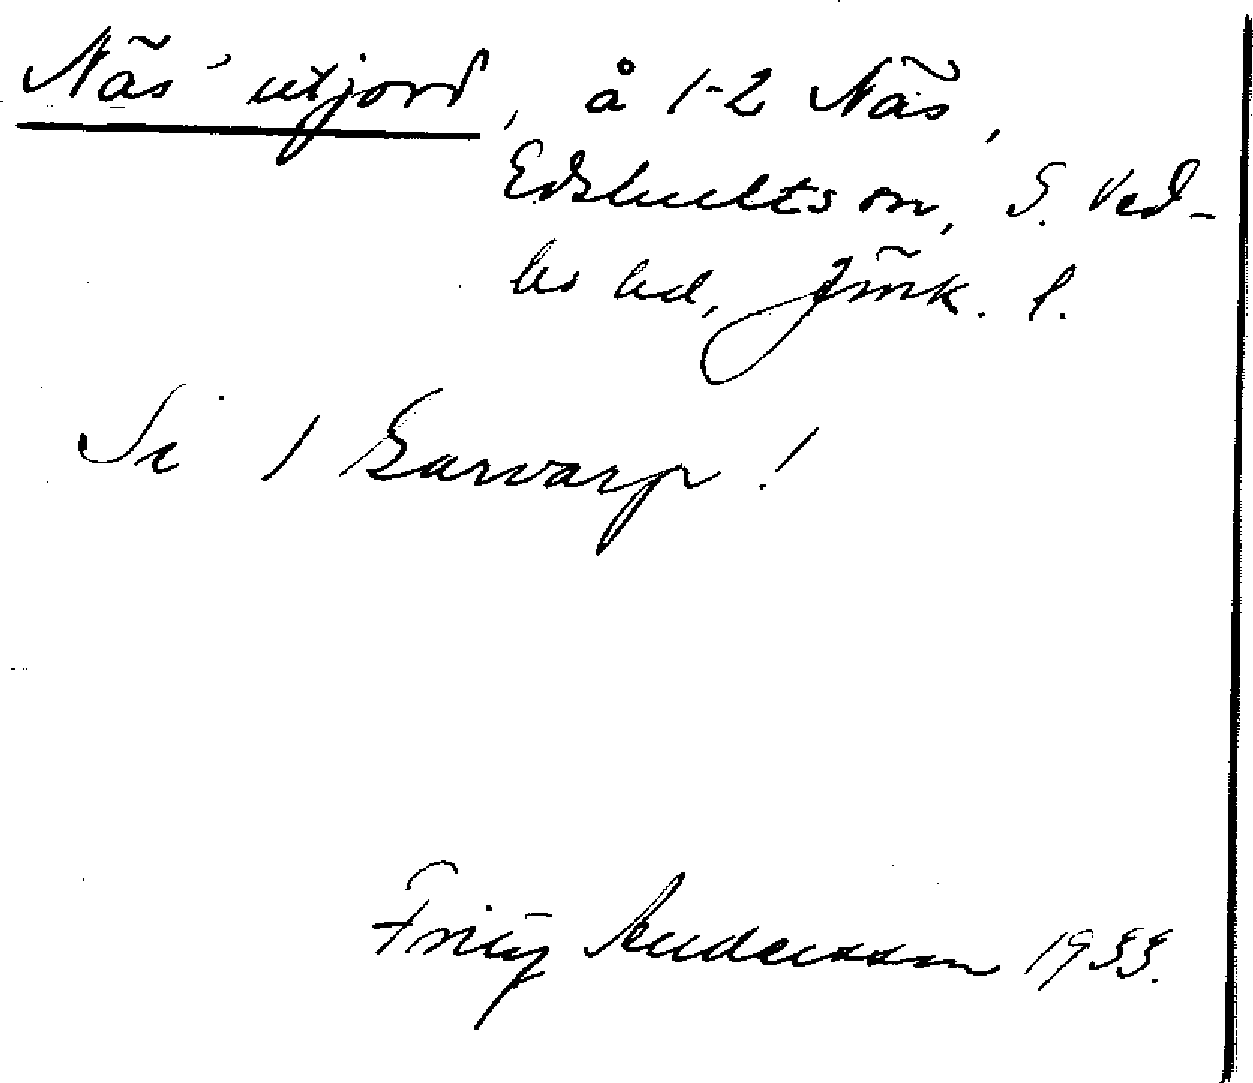 Näs' utjord, å 1-2 Näs,
Edshults sn, S. Ved-
bo hd, Jönk. l.
Se 1 Garvarp!
Fritz Andersson 1933.